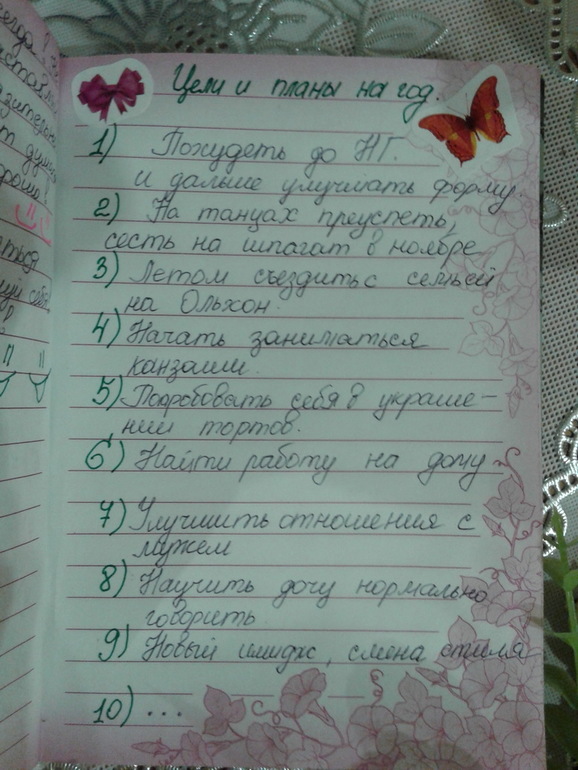 Цели и планы на год.
1) Похудеть до НГ.
и дальше улучшать форму.
2) На танцах преуспеть,
сесть на шпагат в ноябре
3) Летом съездить с семьёй
на Ольхон.
4) Начать заниматься
канзаши.
5) Попробовать себя в украше-
нии тортов.
6) Найти работу на дому
7) Улучшить отношения с
мужем
8) Научить дочу нормально
говорить
9) Новый имидж, смена стиля
10) ...